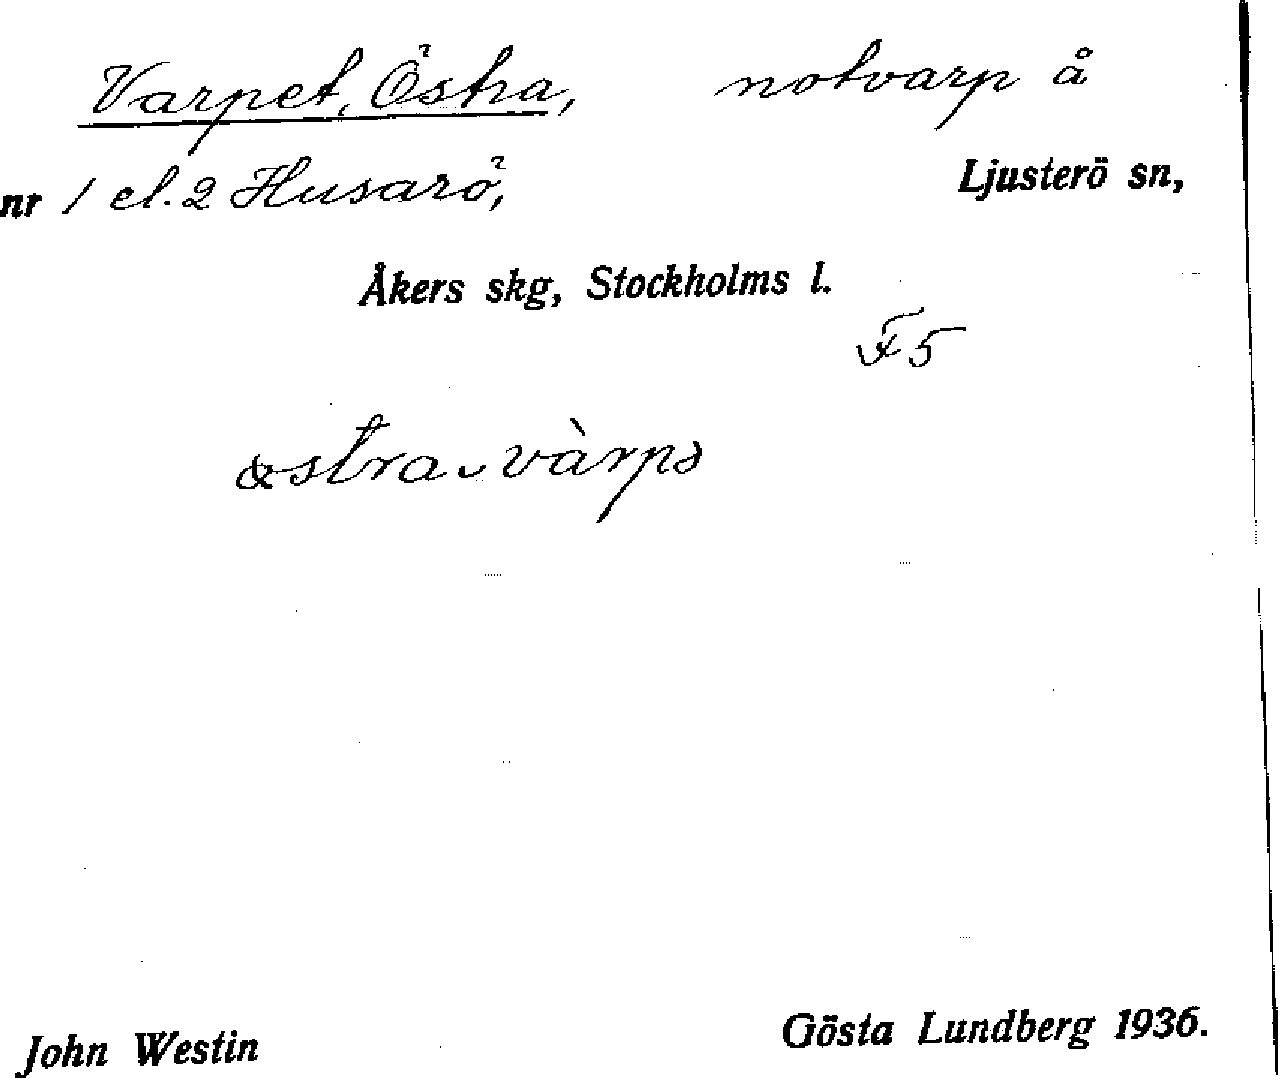 Varpet, Östra, notvarp å
nr 1 el. 2 Husarö, Ljusterö sn,
Åkers skg, Stockholms l.
F5
östra ˬ vàrpə
John Westin Gösta Lundberg 1936.